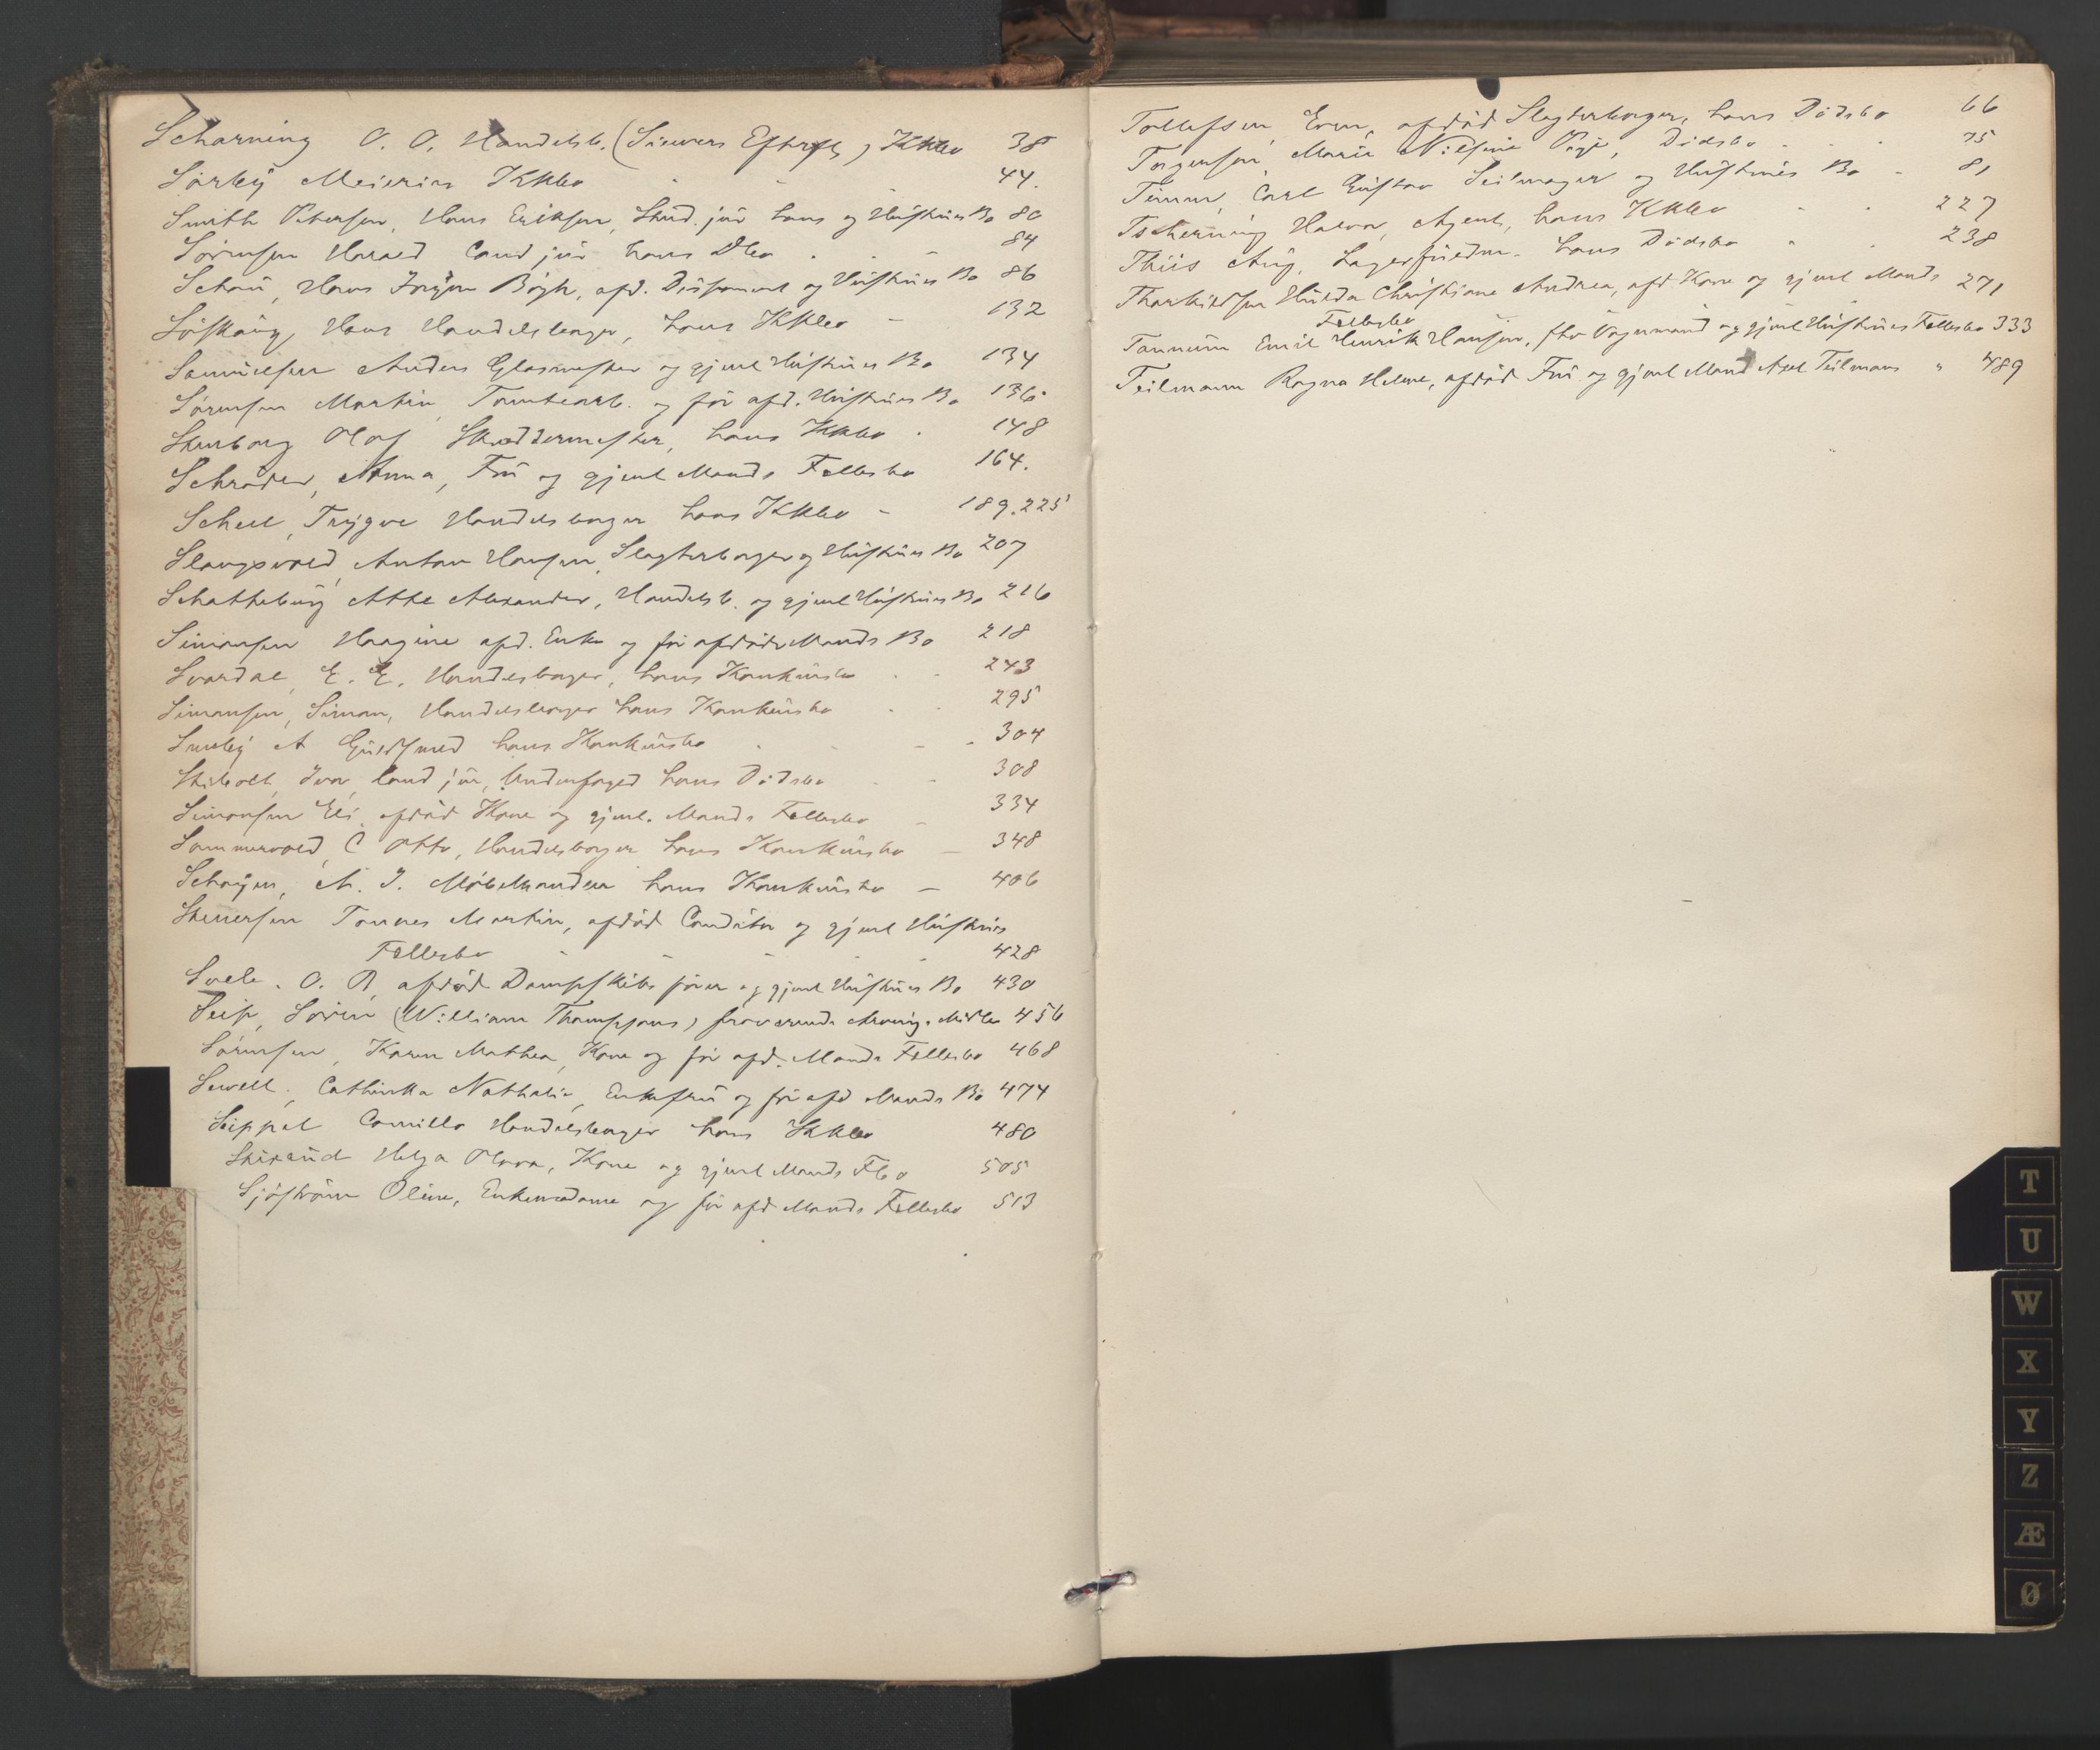 Scharning O. O. Handelsb. (Siewers Efterflg) Kkbo 38
Sørby Meieries Kkbo - - - 44.
Smith Petersen, Hans Eriksen, Stud. jur hans og Hustrues Bo 80
Sørensen Harald Cand jur hans Dbo . . - 84
Schou, Hans Bøgh, afd. Disponent og Hustrues Bo 86
Hans Handelsborger, hans Kkbo - 132
Samuelsen Anders Glasmester og gjenl Hustrues Bo 134
Sørensen Martin Tomtearb. og før afd. Hustrues Bo 136
Stenborg Olof Skræddermester, hans Kkbo . 148
Schrøder, Anna, Fru og gjenl Mands Fællesbo 164.
Scheel, Trygve Handelsborger hans Kkbo - 189.225
Slangsvold, Anton Hansen, Slagterborger og Hustrues Bo 207
Alexander, Handelsb. og gjenl Hustrues Bo 216
Simonsen Haagine afd. Enke og før afdøde Mands Bo 218
Svardal, E. E. Handelsborger, hans Konkursbo . - 243
Simonsen, Simon, Handelsborger hans Konkursbo . . 295
Smeby A Guldsmed hans Konkursbo . - - 304
Stibolt, Iver, Cand jur, Underfoged hans Dødsbo - - 308
Simonsen Eli, afdød Kone og gjenl. Mands Fællesbo - 334
Sommervold, C Otto, Handelsborger hans Konkursbo - 348
Schøyen, N. J. Møbelhandler hans Konkursbo - 406
Stenersen Tønnes Martin, afdød Conditor og gjenl Hustrues
Fællesbo - - - . . 428
Svele. O. B, afdød Dampskibsfører og gjenl Hustrues Bo 430
Seip, Søren (William Thompsons) fraværende Arvings Midler 456
Sørensen, Karen Mathea, Kone og før afd. Mands Fællesbo 468
Sewell, Cathinka Nathalie, Enkefru og før afd Mands Bo 474
Seippel Camillo Handelsborger hans Kkbo 480
Helga Olava, Kone og gjenl Mands Fbo 505
Sjøstrøm Oline, Enkemadame og før afd Mands Fællesbo 513
Tollefsen Even, afdød Slagterborger, hans Dødsbo 66
Torgersen Marie Nilsine Pige, Dødsbo . . . 75
Timm, Carl Gustav Seilmager og Hustrues Bo - 81
Tscherning Halvor, Agent, hans Kkbo - . 227
Thiis Aug, Lagerformd. hans Dødsbo " . 238
Thorkildsen Hulda Christiane Andrea, afd Kone og gjenl Mands 271
Fællesbo
Tannum Emil Henrik Hansen, fhv Vognmand og gjenl Hustrues Fællesbo 333
Teilmann Ragna Helene, afdød Fru og gjenl Mand Axel Teilmann " 489
T
U
W
X
Y
Z
Æ
Ø